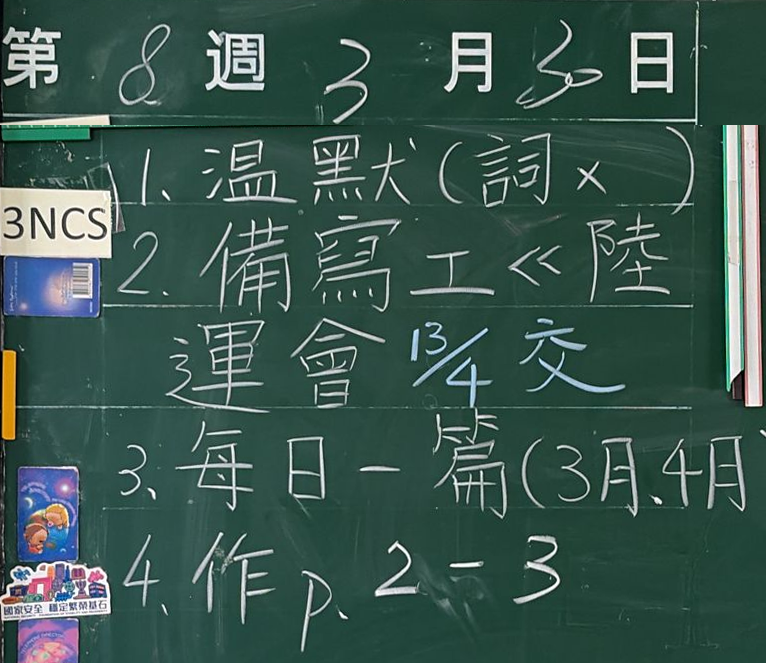 第 8 週 3 月 30 日
1. 溫默(詞x )
3NCS
2. 備寫工<<陸
運會 13/4 交
3. 每日一篇(3月、4月)
4. 作 p. 2-3
國家安全 穩定繁榮基石